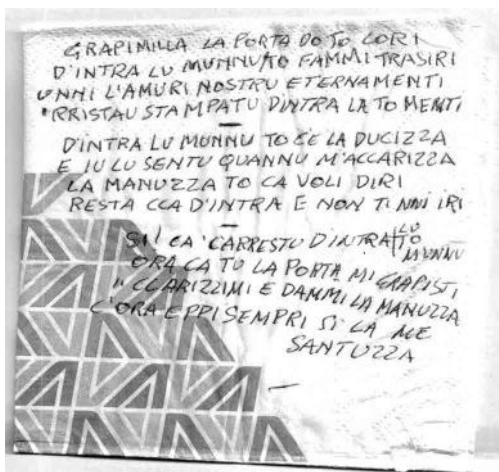 GRAPIMILLA LA PORTA DO TO CORI
D'INTRA LU MUNNU TO FAMMI TRASIRI
UNNI L'AMURI NOSTRU ETERNAMENTI
RRISTAU STAMPATU DINTRA LA TO MENTI
D'INTRA LU MUNNU TO C'E LA DUCIZZA
E IU LU SENTU QUANNU M'ACCARIZZA
LA MANUZZA TO CA VOLI DIRI
RESTA CCA D'INTRA E NON TI NNI IRI
SI! CA CARRESTU D'INTRA LU TO MUNNU
ORA CA TU LA PORTA MI GRAPISTI
CCLARIZZIMI E DAMMI LA MANUZZA
C'ORA E PPI SEMPRI SI LA ME
SANTUZZA